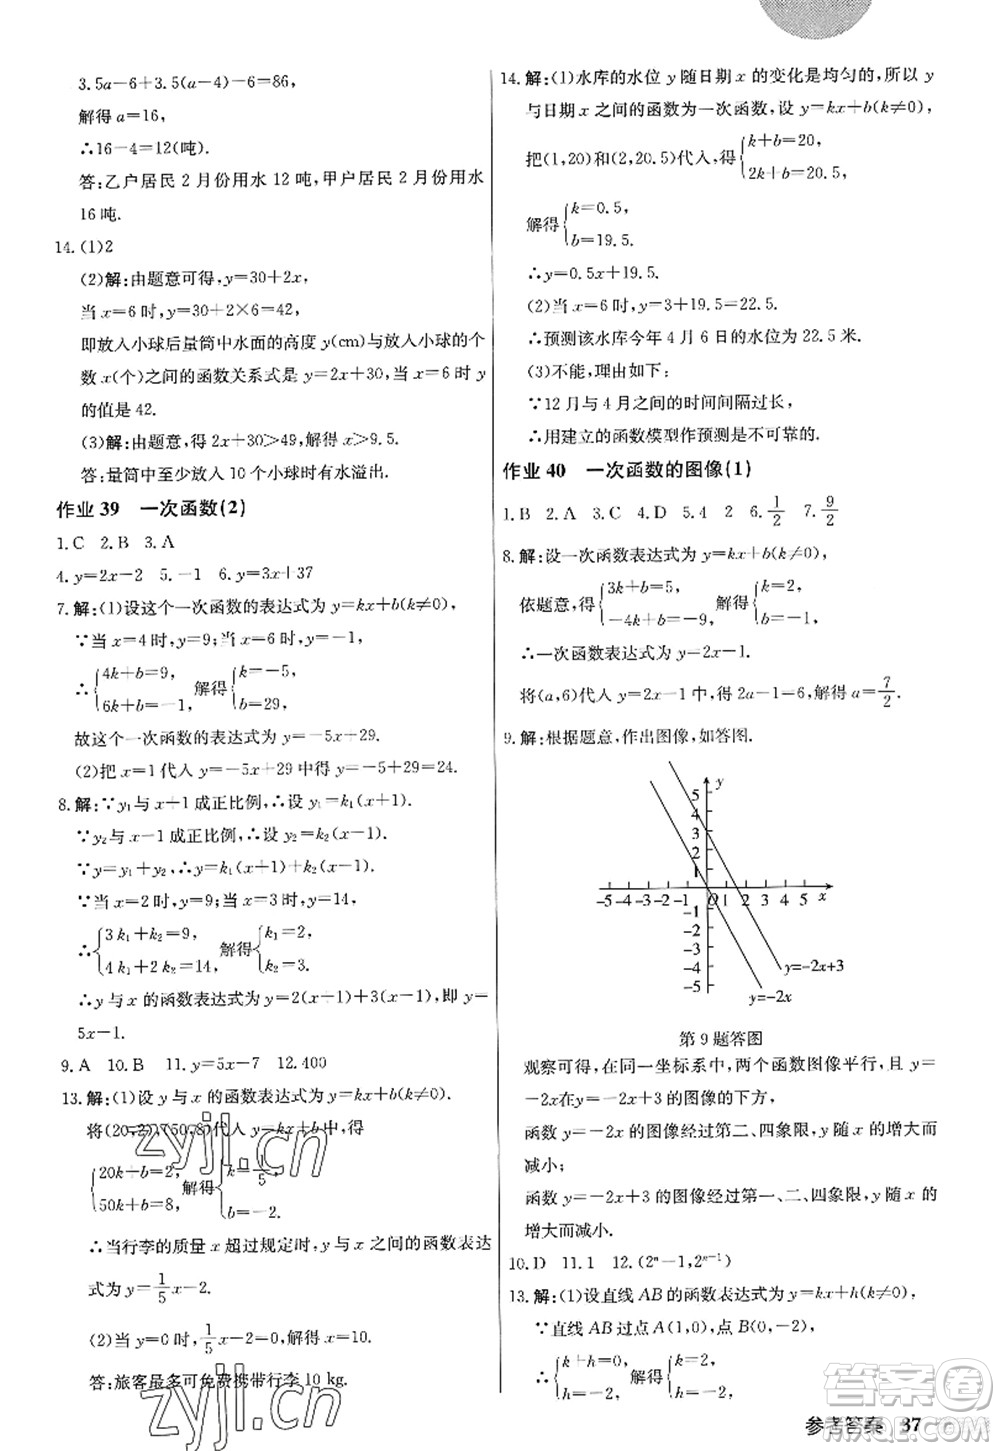 3.5a－6＋3.5(a－4)－6＝86,
解得 a＝16,
∴16－4＝12(吨).
答:乙户居民 2 月份用水 12 吨,甲户居民 2 月份用水
16 吨.
14. (1)2
(2)解:由题意可得,y＝30＋2x,
当 x＝6 时,y＝30＋2×6＝42,
即放入小球后量筒中水面的高度 y(cm)与小球的个
数 x(个)之间的函数关系式是 y＝2x＋30,当 x＝6 时 y
的值是 42.
(3)解:由题意,得 2x＋30＞49,解得 x＞9.5.
答:量筒中至少放入 10 个小球时有水溢出.
作业 39 一次函数(2)
1. C 2. B 3. A
4. y＝2x－2 5. －1 6. y＝3x＋37
7. 解:(1)设这个一次函数的表达式为 y＝kx＋b(k≠0),
∵当 x＝4 时,y＝9;当 x＝6 时,y＝－1,
∴{4k＋b＝9, 6k＋b＝－1, 解得{k＝－5, b＝29,
故这个一次函数的表达式为 y＝－5x＋29.
(2)把 x＝1 代入 y＝－5x＋29 中得 y＝24.
8. 解:∵y₁与 x＋1 成正比例,∴设 y₁＝k₁(x＋1).
∵y₂与 x－1 成正比例,∴设 y₂＝k₂(x－1).
∵y＝y₁＋y₂,∴y＝k₁(x＋1)＋k₂(x－1).
∵当 x＝2 时,y＝9;当 x＝3 时,y＝14,
∴{3k₁＋k₂＝9, 4k₁＋2k₂＝14, 解得{k₁＝2, k₂＝3.
∴y 与 x 的函数表达式为 y＝2(x＋1)＋3(x－1),即 y＝
5x－1.
9. A 10. B 11. y＝5x－7 12. 400
13. 解:(1)设 y 与 x 的函数表达式为 y＝kx＋b(k≠0).
将(20,2),(50,8)代入 y＝kx＋b 中,得
{20k＋b＝2, 50k＋b＝8, 解得{k＝1/5, b＝－2.
∴当行李的质量 x 超过规定时,y 与 x 之间的函数表达
式为 y＝1/5 x－2.
(2)当 y＝0 时,1/5 x－2＝0,解得 x＝10.
答:旅客最多可免费携带行李 10 kg.
14. 解:(1)水库的水位 y 随日期 x 的变化是均匀的,所以 y
与日期 x 之间的函数为一次函数,设 y＝kx＋b(k≠0),
把(1,20)和(2,20.5)代入,得{k＋b＝20, 2k＋b＝20.5,
解得{k＝0.5, b＝19.5.
∴y＝0.5x＋19.5.
(2)当 x＝6 时,y＝3＋19.5＝22.5.
∴预测该水库今年 4 月 6 日的水位为 22.5 米.
(3)不能,理由如下:
∵12 月与 4 月之间的时间间隔过长,
∴用建立的函数模型作预测是不可靠的.
作业 40 一次函数的图像(1)
1. B 2. A 3. C 4. D 5. 4 2 6. 1/2 7. 9/2
8. 解:设一次函数表达式为 y＝kx＋b(k≠0),
依题意,得{3k＋b＝5, －4k＋b＝－9, 解得{k＝2, b＝－1.
∴一次函数表达式为 y＝2x－1.
将(a,6)代入 y＝2x－1 中,得 2a－1＝6,解得 a＝7/2.
9. 解:根据题意,作出图像,如答图.
y
5
4
3
2
1
－5－4－3－2－1 O 1 2 3 4 5 x
－1
－2
－3
－4
－5
y＝－2x＋3
y＝－2x
第 9 题答图
观察可得,在同一坐标系中,两个函数图像平行,且 y＝
－2x在 y＝－2x＋3 的图像的下方,
函数 y＝－2x 的图像经过第二、四象限,y 随 x 的增大而
减小;
函数 y＝－2x＋3 的图像经过第一、二、四象限,y 随 x 的
增大而减小.
10. D 11. 1 12. (2ⁿ－1,2ⁿ⁻¹)
13. 解:(1)设直线 AB 的函数表达式为 y＝kx＋h(k≠0),
∵直线 AB 过点 A(1,0),点 B(0,－2),
∴{k＋h＝0, h＝－2, 解得{k＝2, h＝－2,
参考答案 37
zyjl.cn
zyjl.cn
答案圈